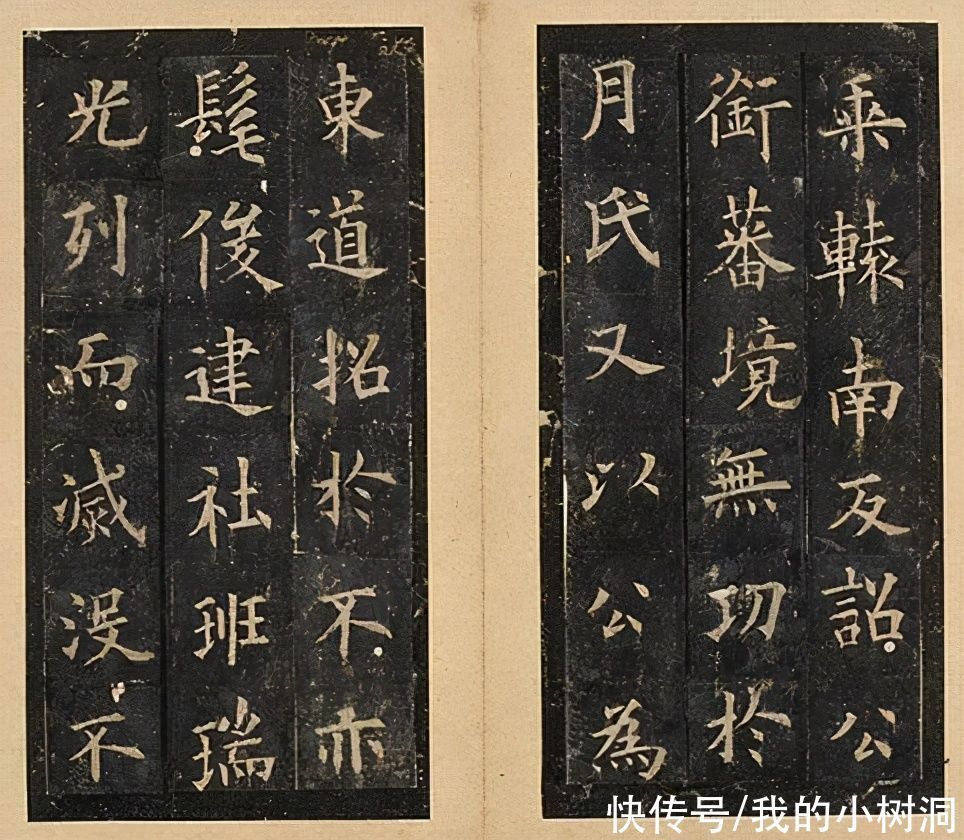 乘轅南反詔公
銜蕃境無功於
月氏又以公為
東道招於不亦
髦俊建社班瑞
光列而滅没不
快传号/我的小树洞